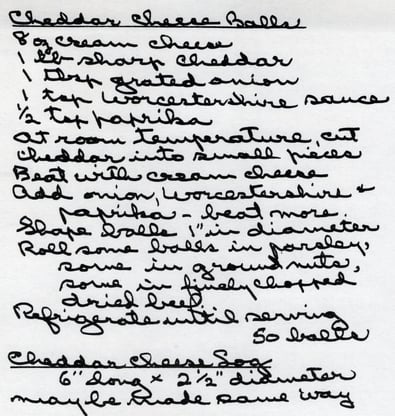 Cheddar Cheese Balls
8 oz cream cheese
1 lb sharp cheddar
1 tbsp grated onion
1 tsp Worcestershire sauce
1/2 tsp paprika
At room temperature, cut
cheddar into small pieces
Beat with cream cheese
Add onion, Worcestershire +
paprika - beat more.
Shape balls 1" in diameter
Roll some balls in parsley,
some in ground nuts,
some in finely chopped
dried beef
Refrigerate until serving
50 balls
Cheddar Cheese Log
6" long x 2 1/2" diameter
may be made same way